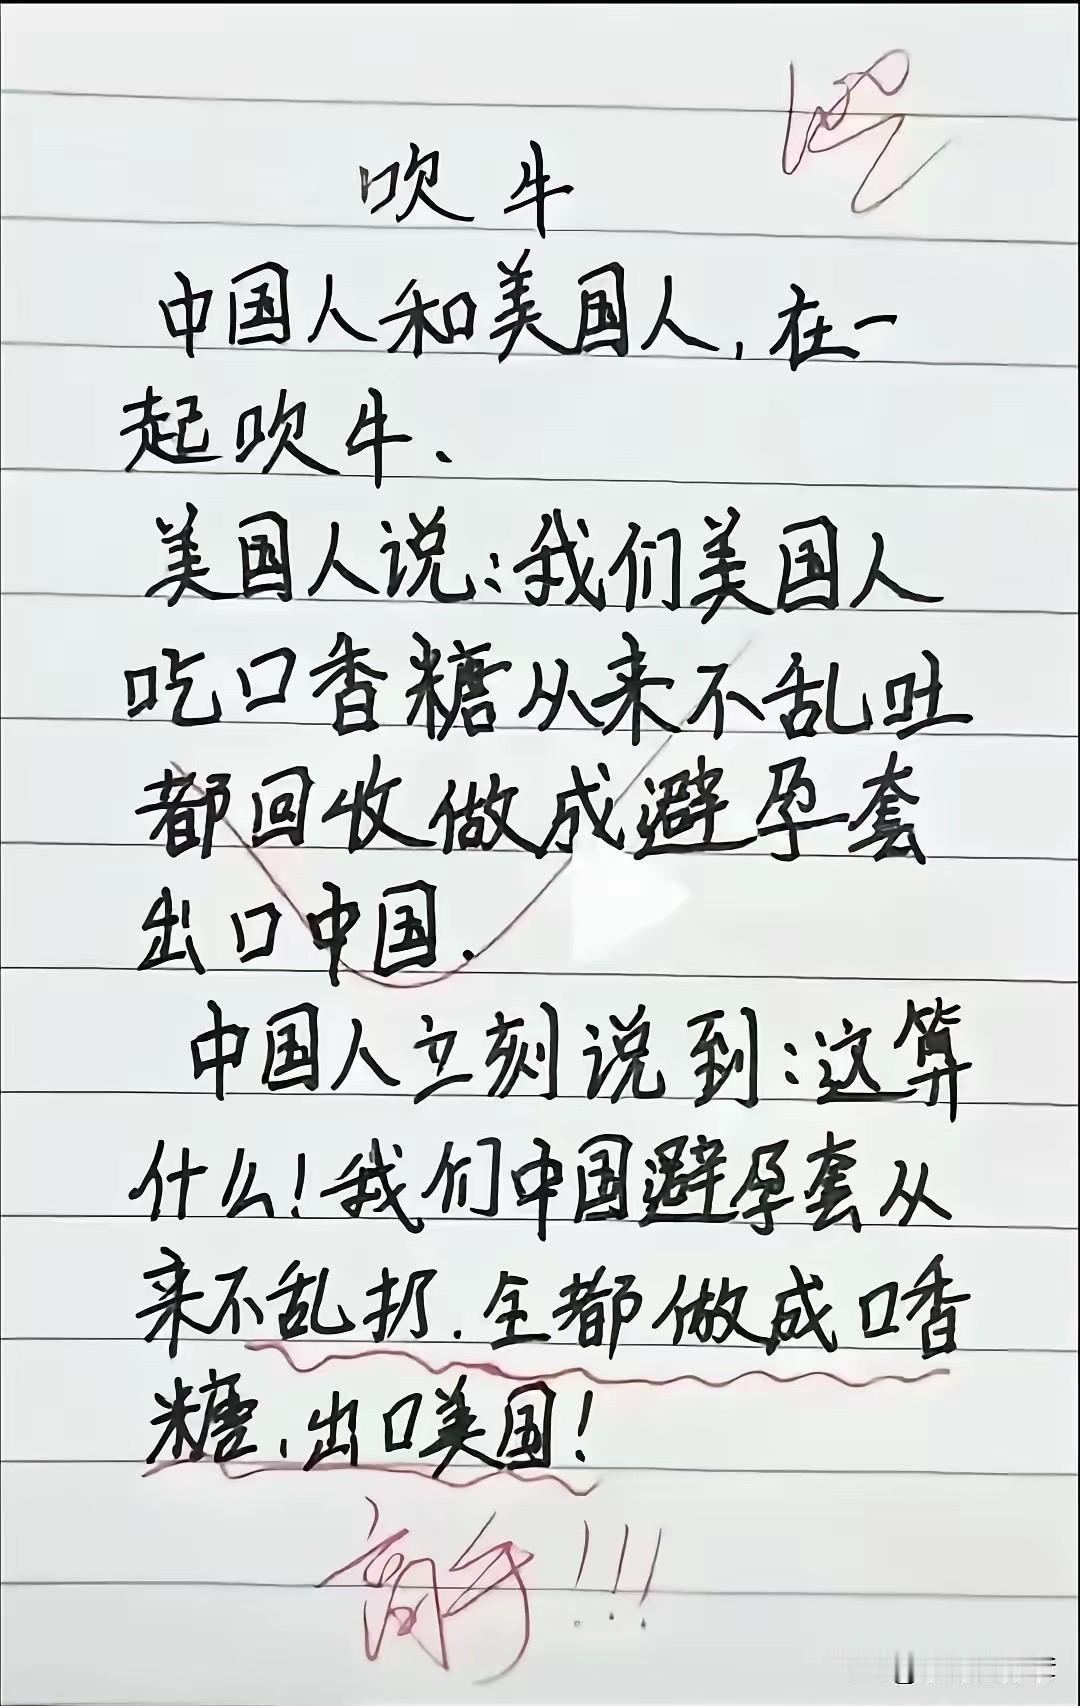 100
吹牛
中国人和美国人,在一
起吹牛、
美国人说:我们美国人
吃口香糖从来不乱吐
都回收做成避孕套
出口中国.
中国人立刻说到:这算
什么!我们中国避孕套从
来不乱扔.全都做成口香
糖,出口美国!
高手!!!